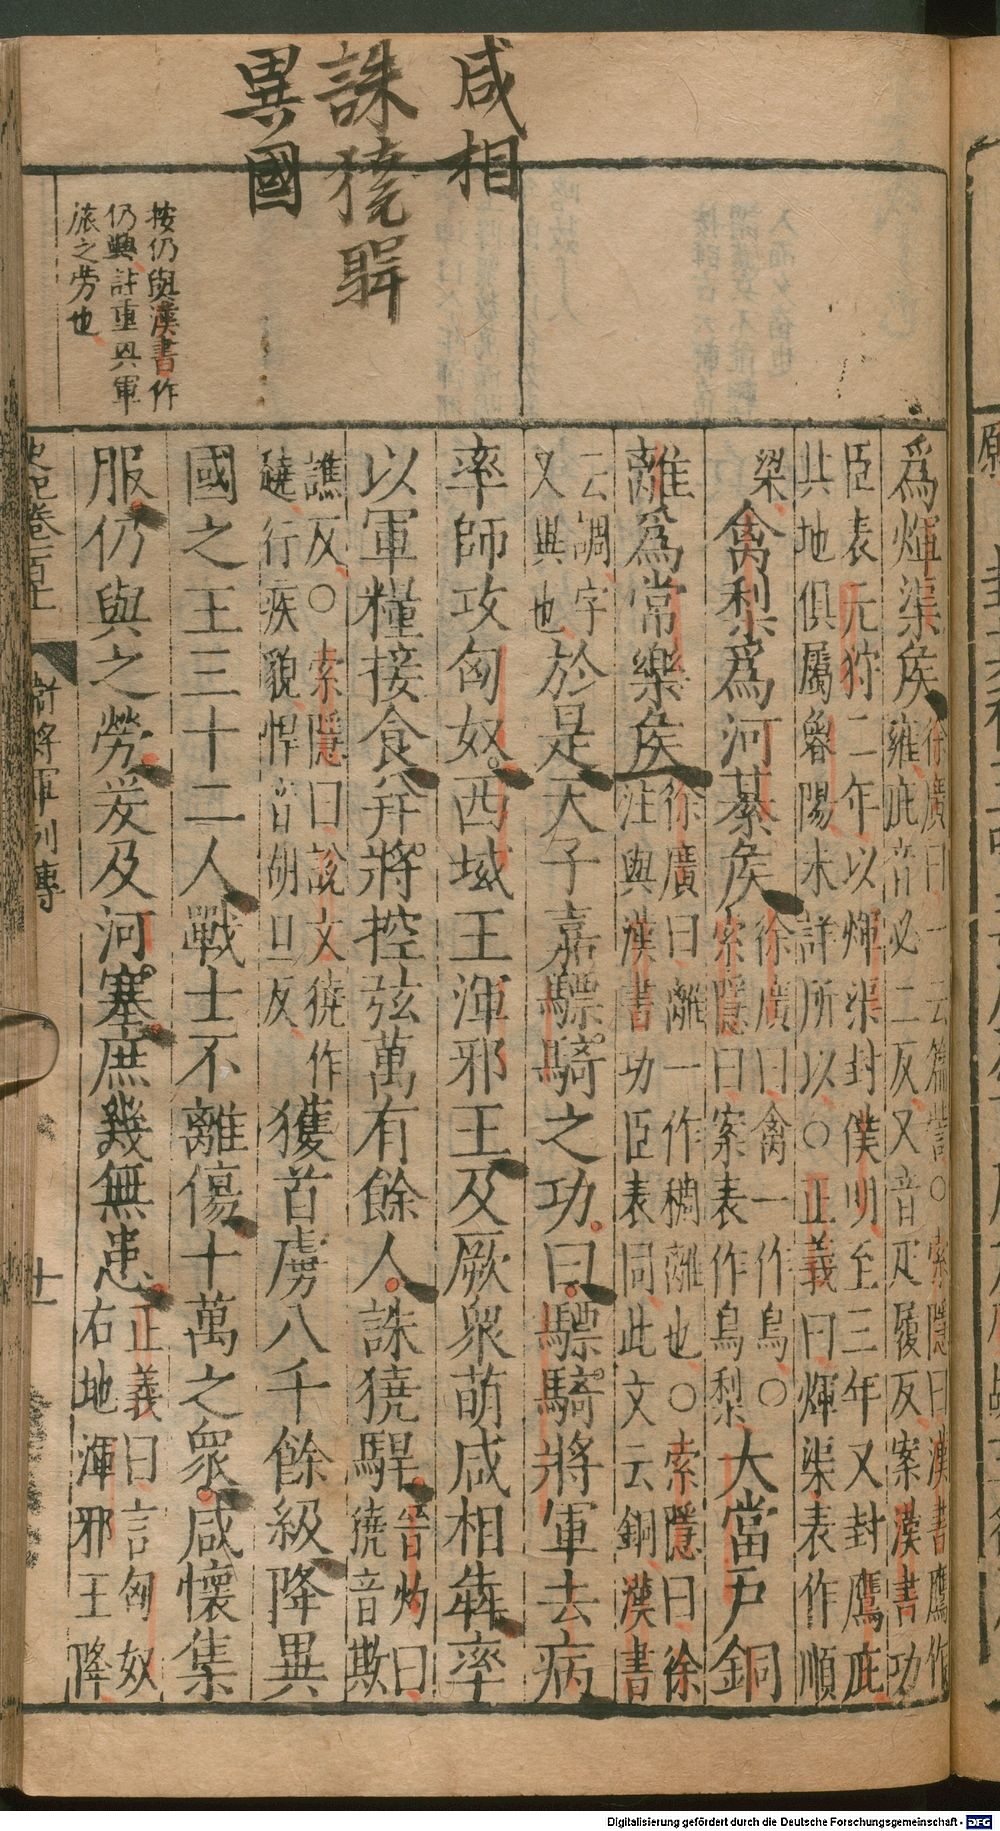 咸相
誅獟駻
異國
按仍與漢書作
仍興註重興軍
旅之勞也
為煇渠侯徐廣曰一云篇訾○索隱曰漢書鷹作
雍庇音必二反又音疋履反案漢書功
臣表元狩二年以煇渠封僕明至三年又封鷹庇
其地俱屬魯陽未詳所以○正義曰煇渠表作順
梁禽梨為河綦侯徐廣曰禽一作烏○
索隱曰案表作烏梨大當戶銅
離為常樂侯徐廣曰離一作稠離也○索隱曰徐
注與漢書功臣表同此文云銅漢書
云調字
又異也於是天子嘉驃騎之功曰驃騎將軍去病
率師攻匈奴西域王渾邪王及厥眾萌咸相犇率
以軍糧接食并將控弦萬有餘人誅獟駻晉灼曰
獟音欺
譙反○索隱曰說文獟作
趬行疾貌悍音胡旦反獲首虜八千餘級降異
國之王三十二人戰士不離傷十萬之眾咸懷集
服仍與之勞爰及河塞庶幾無患正義曰言匈奴
右地渾邪王降
史記卷一百十一
衛將軍列傳
十一
Digitalisierung gefördert durch die Deutsche Forschungsgemeinschaft - DFG